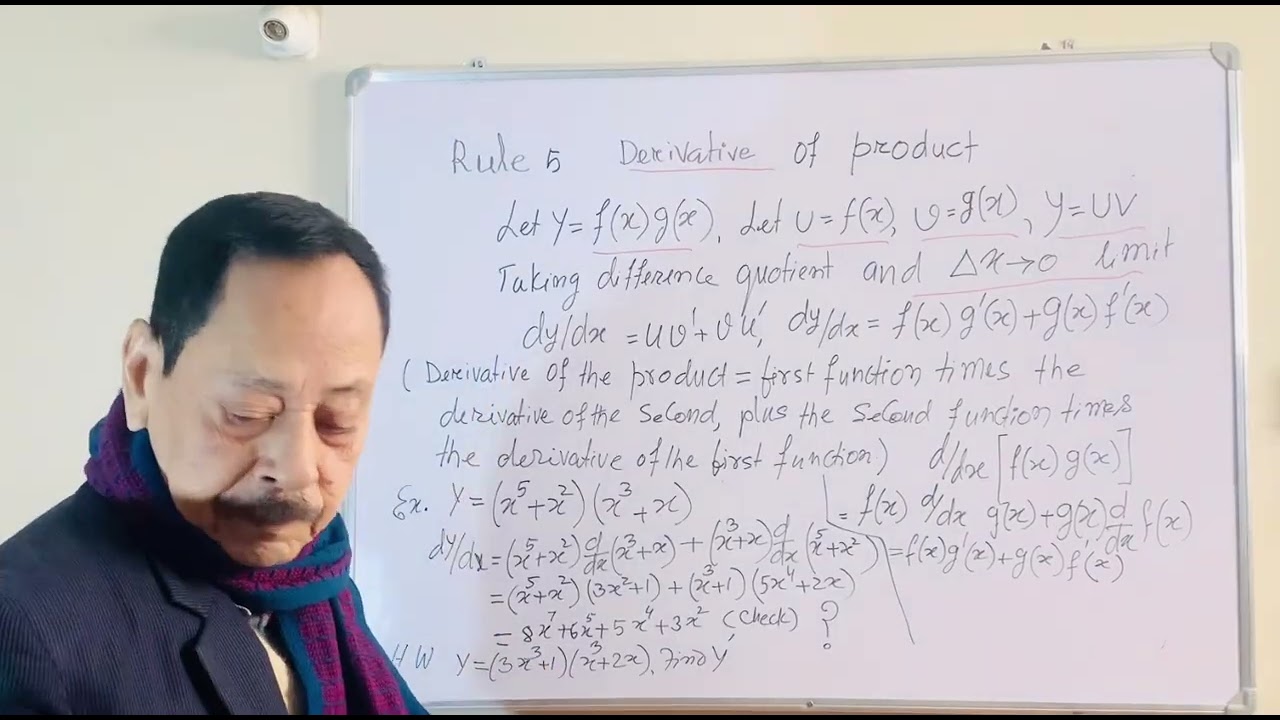 Rule 5 Derivative of product
Let Y = f(x) g(x), Let U = f(x), v = g(x), Y = UV
Taking difference quotient and Δx→0 limit
dy/dx = uv' + v'u', dy/dx = f(x) g'(x) + g(x) f'(x)
( Derivative of the product = first function times the
derivative of the second, plus the second function times
the derivative of the first function)
d/dx [f(x) g(x)]
= f(x) d/dx g(x) + g(x) d/dx f(x)
= f(x) g'(x) + g(x) f'(x)
Ex. Y = (x⁵+x²) (x³+x)
dy/dx = (x⁵+x²) d/dx (x³+x) + (x³+x) d/dx (x⁵+x²)
= (x⁵+x²) (3x²+1) + (x³+1) (5x⁴+2x)
= 8x⁷+6x⁵+5x⁴+3x² (Check) ?
HW Y = (3x³+1) (x³+2x), Find Y'